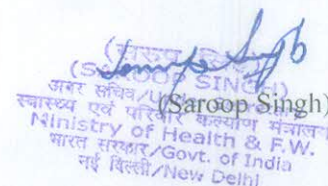 (SAROOP SINGH)
अवर सचिव/U
(Saroop Singh)
स्वास्थ्य एवं परिवार कल्याण मंत्रालय
Ministry of Health & F.W.
भारत सरकार/Govt. of India
नई दिल्ली/New Delhi